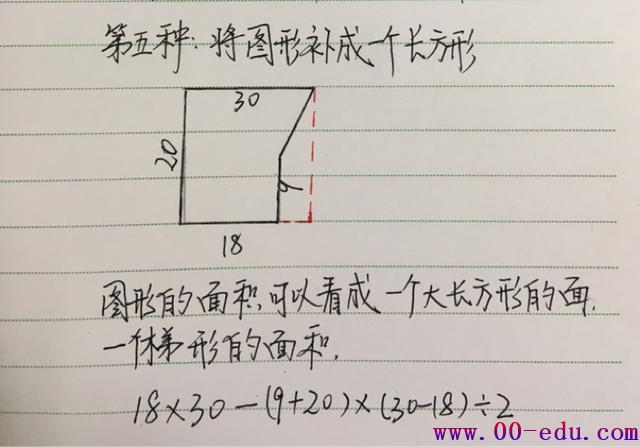 第五种:将图形补成一个长方形
30
20
9
18
图形的面积,可以看成一个大长方形的面.
一个梯形的面积.
18×30-(9+20)×(30-18)÷2
www.00-edu.com